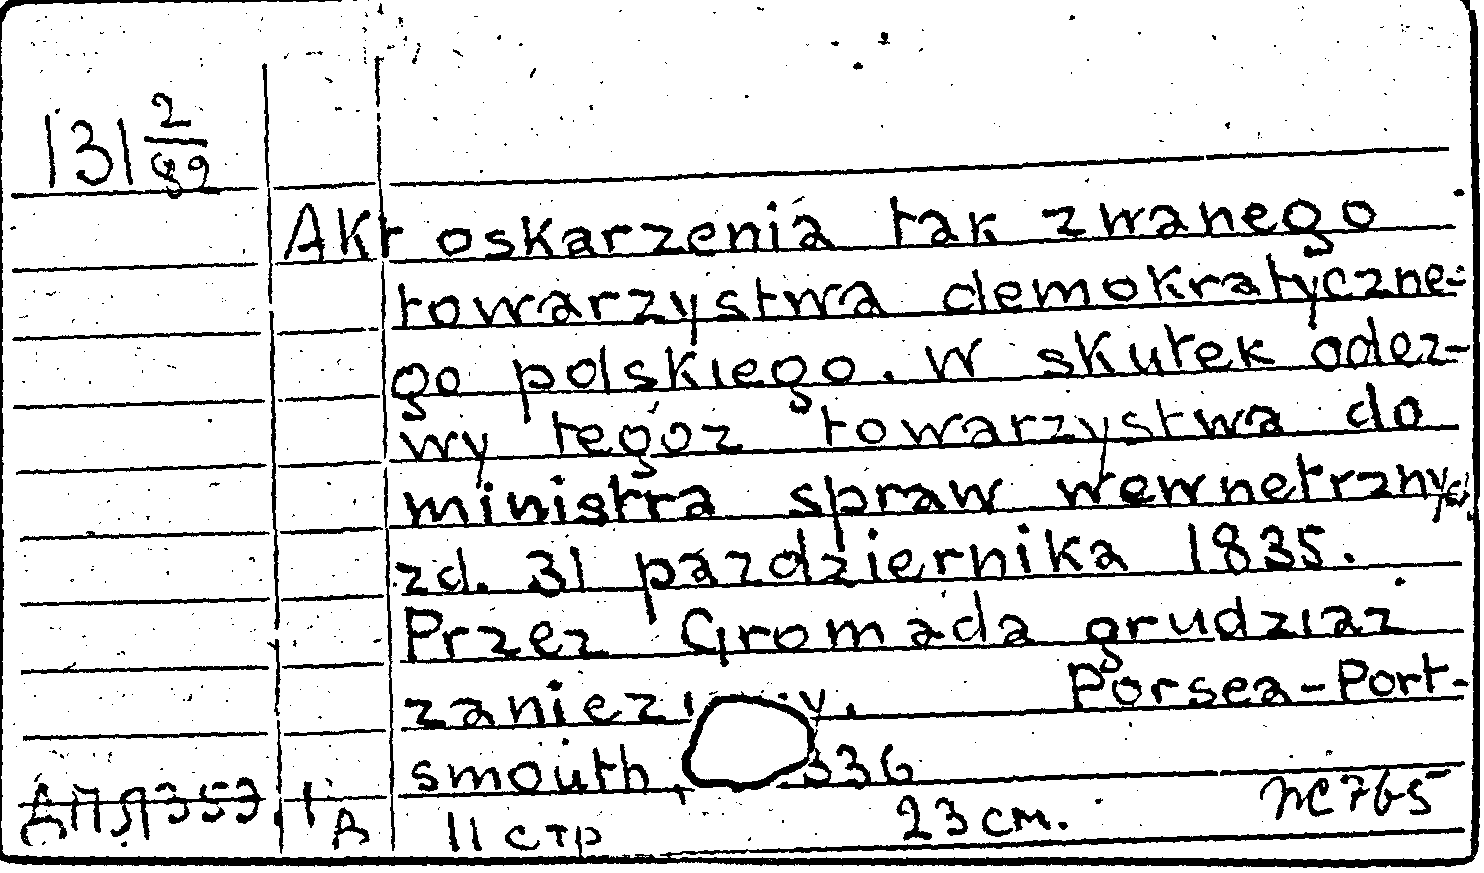 131 2/92
Akt oskarzenia tak zwanego
towarzystwa demokratyczne-
go polskiego. W skutek odez-
wy tegoz towarzystwa do
ministra spraw wewnetrznych
zd. 31 pazdziernika 1835.
Przez Gromada grudziaz
Porsea-Port-
smouth, 336
11 стр 23 см.